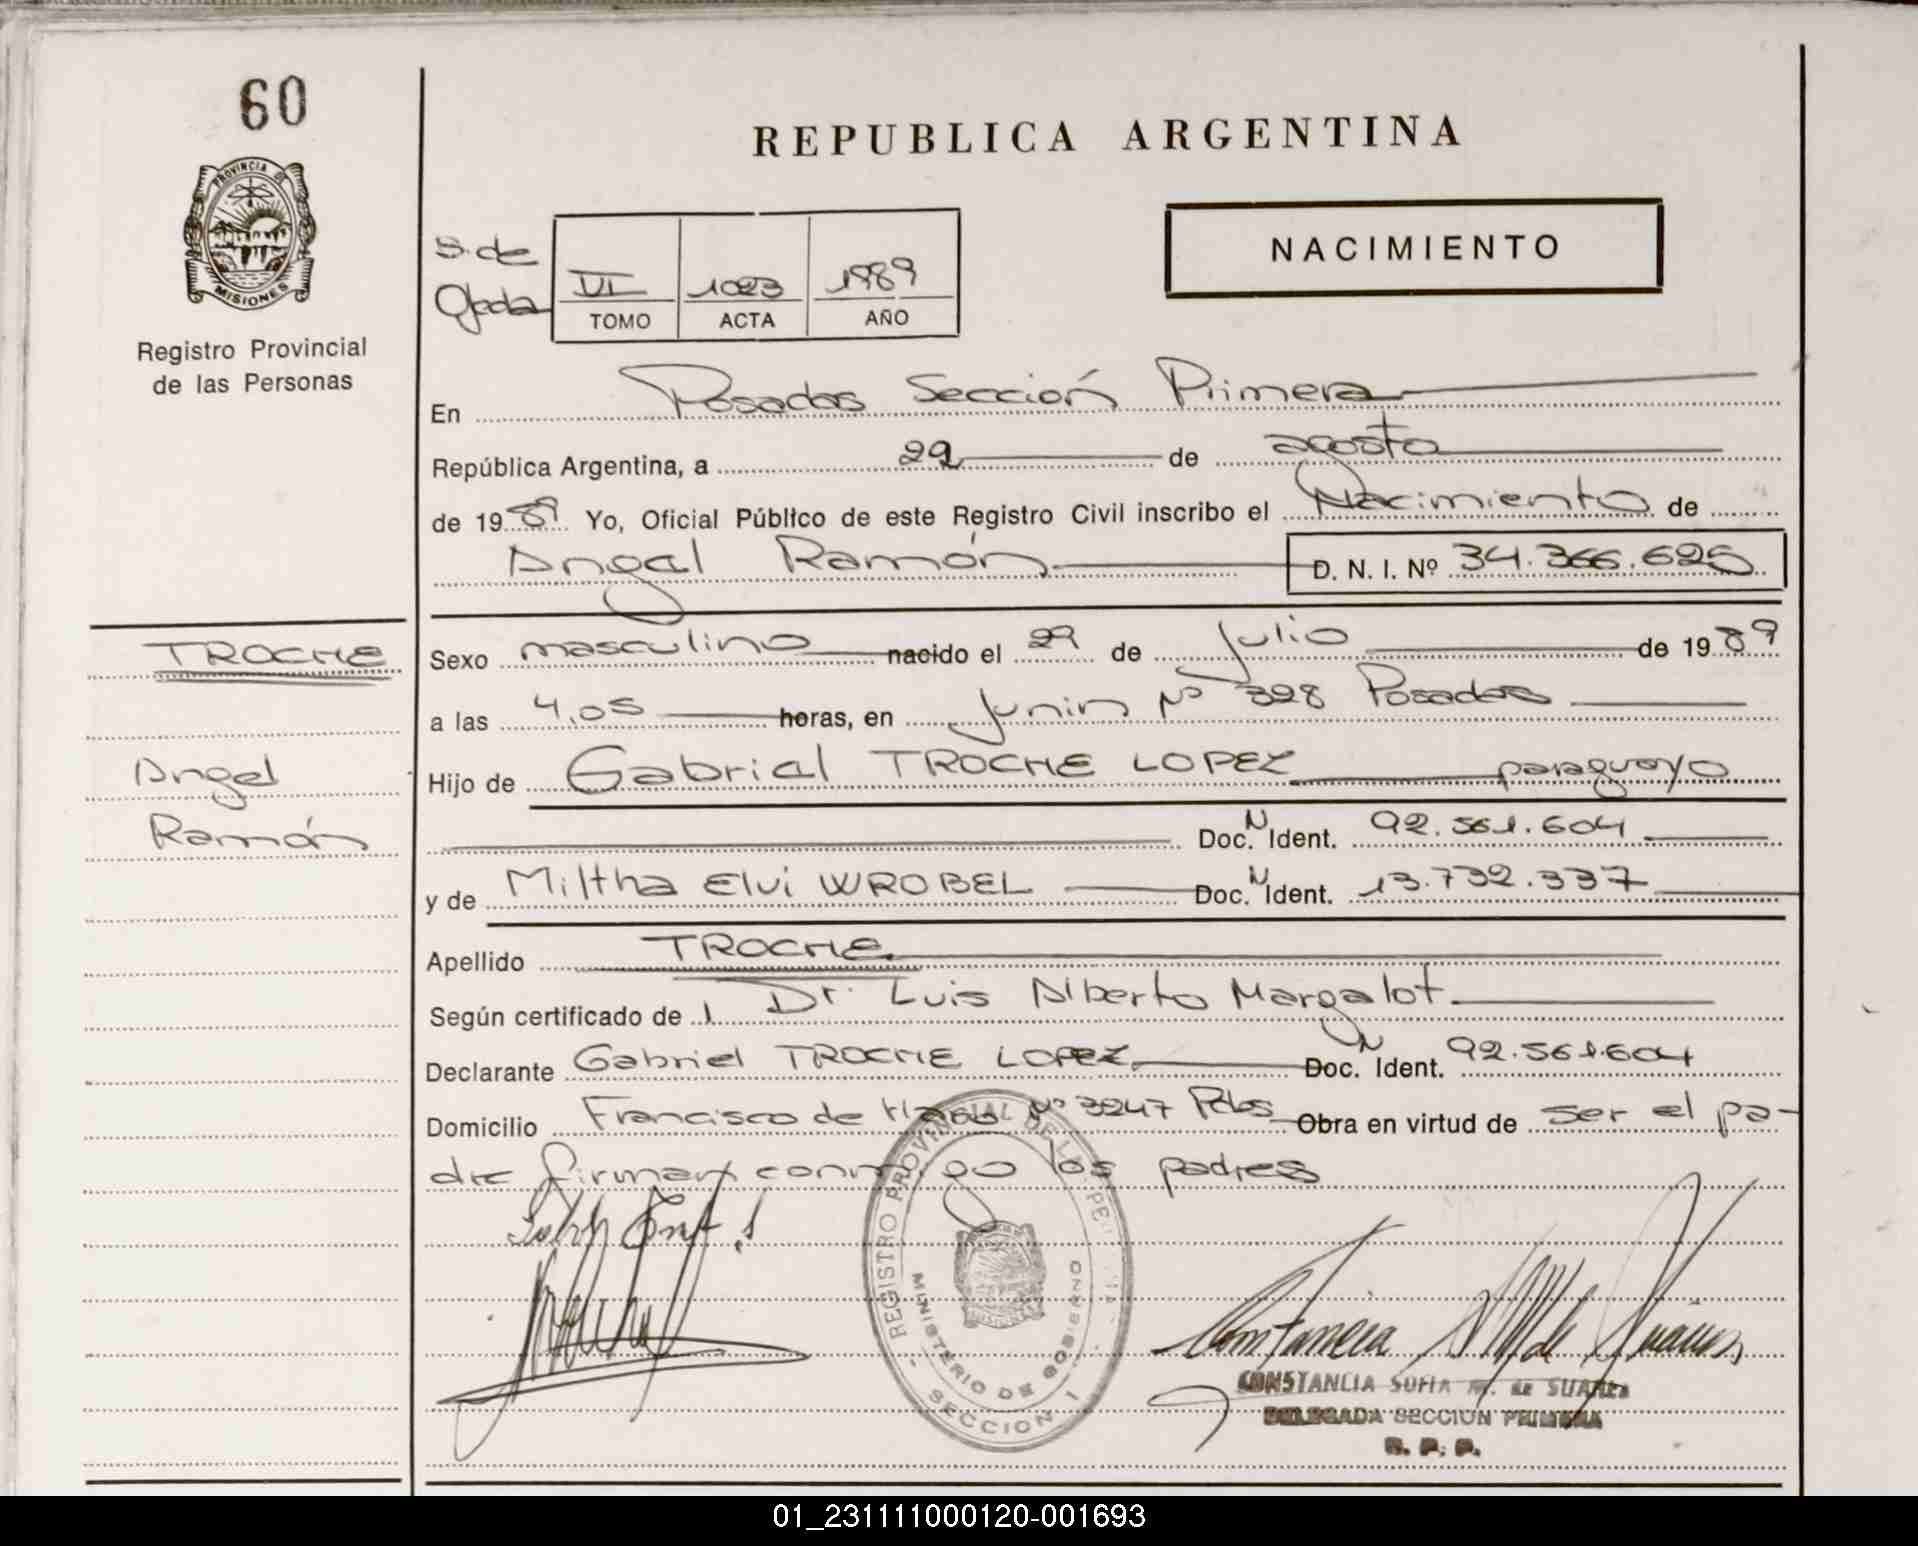 60
PROVINCIA DE
MISIONES
Registro Provincial
de las Personas
TROCHE
Angel
Ramón
REPUBLICA ARGENTINA
NACIMIENTO
S. de
Ojeda
VI 1023 1989
TOMO ACTA AÑO
En Posadas Sección Primera
República Argentina, a 29 de agosto
de 1989 Yo, Oficial Público de este Registro Civil inscribo el Nacimiento de
Angel Ramón D. N. I. Nº 34.366.625
Sexo masculino nacido el 29 de julio de 1989
a las 4,05 horas, en Junin Nº 328 Posadas
Hijo de Gabriel TROCHE LOPEZ paraguayo
Doc. N Ident. 92.561.604
y de Miltha Elvi WROBEL Doc. N Ident. 13.732.337
Apellido TROCHE
Según certificado de l Dr. Luis Alberto Margalot
Declarante Gabriel TROCHE LOPEZ Doc. N Ident. 92.561.604
Domicilio Francisco de Haro Nº 3247 Pdas Obra en virtud de ser el pa-
dre firman conmigo los padres
REGISTRO PROVINCIAL DE LAS PE
MINISTERIO DE GOBIERNO
SECCION 1
MISIONES
CONSTANCIA SOFIA M. de SUAREZ
DELEGADA SECCION PRIMERA
R. P. P.
01_231111000120-001693